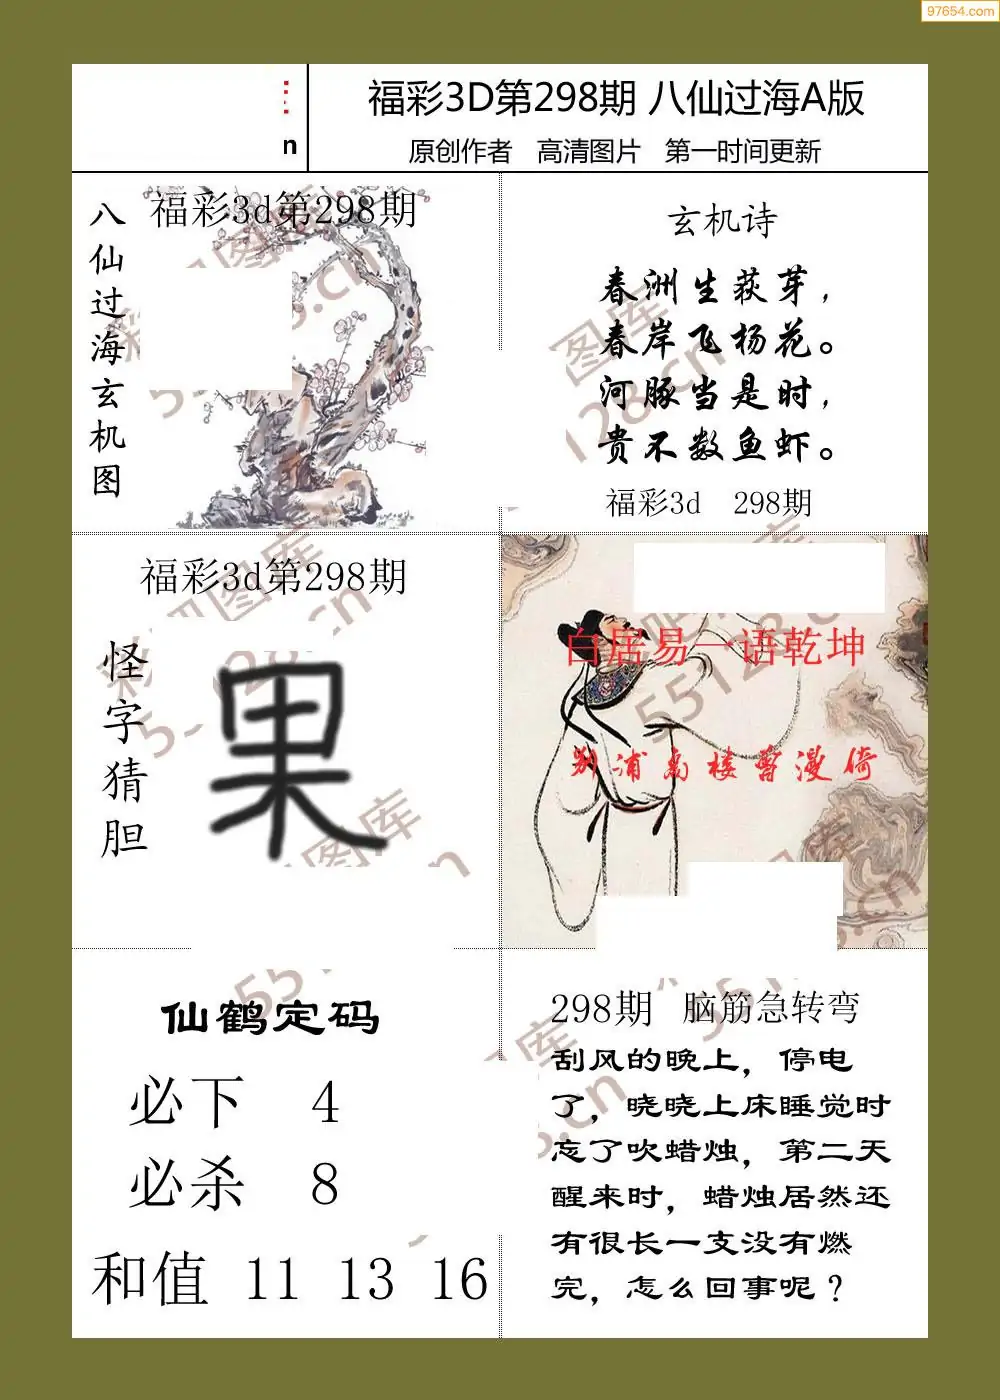 97654.com
n
福彩3D第298期 八仙过海A版
原创作者 高清图片 第一时间更新
八仙过海玄机图
福彩3d第298期
玄机诗
春洲生荻芽，
春岸飞杨花。
河豚当是时，
贵不数鱼虾。
福彩3d 298期
福彩3d第298期
怪字猜胆
果
白居易一语乾坤
别浦高楼曾漫倚
仙鹤定码
必下 4
必杀 8
和值 11 13 16
298期 脑筋急转弯
刮风的晚上，停电
了，晓晓上床睡觉时
忘了吹蜡烛，第二天
醒来时，蜡烛居然还
有很长一支没有燃
完，怎么回事呢？